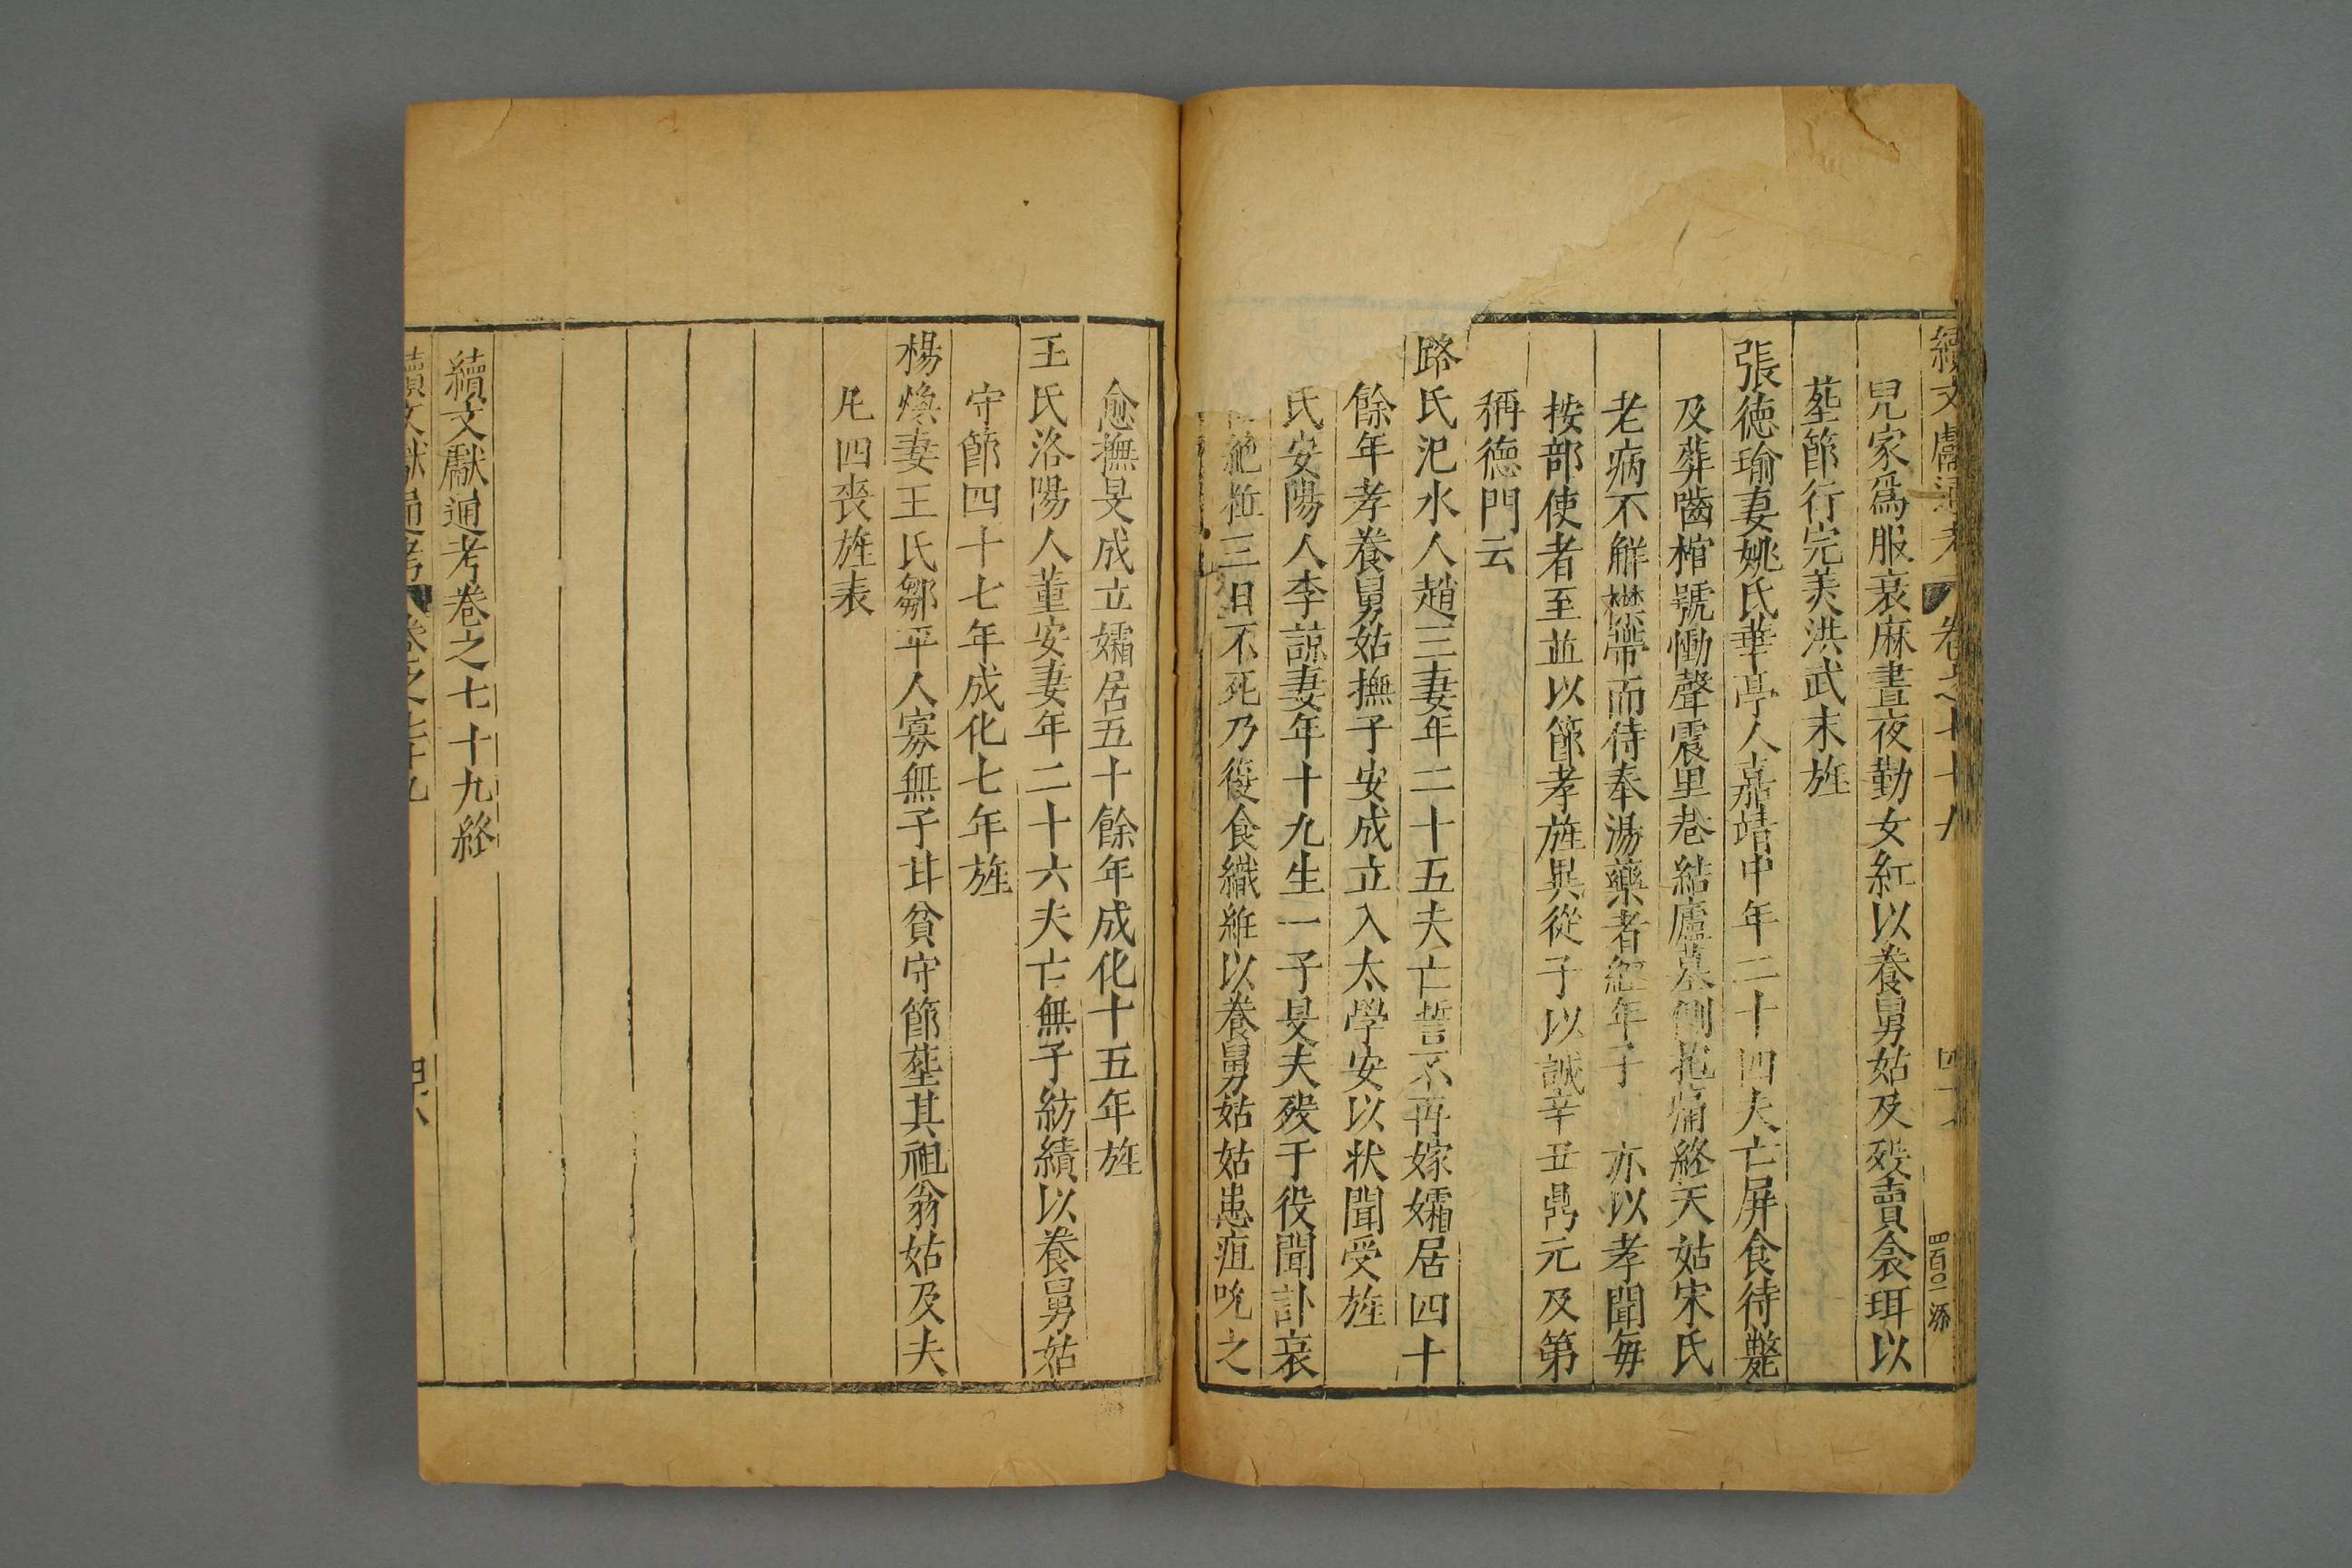 續文獻通考 卷之七十九
兒家爲服衰麻晝夜勤女紅以養舅姑及歿賣衾珥以
塟節行完美洪武末旌
張德瑜妻姚氏華亭人嘉靖中年二十四夫亡屏食待斃
及葬嚙棺號慟聲震里巷結廬墓側抱痛終天姑宋氏
老病不解襟帶而待奉湯藥者經年子 亦以孝聞每
按部使者至並以節孝旌異從子以誠辛丑鼎元及第
稱德門云
路氏汜水人趙三妻年二十五夫亡誓不再嫁孀居四十
餘年孝養舅姑撫子安成立入太學安以状聞受旌
氏安陽人李諒妻年十九生一子旻夫歿于役聞訃哀
絶粒三日不死乃復食織維以養舅姑姑患疽吮之
愈撫旻成立孀居五十餘年成化十五年旌
王氏洛陽人董安妻年二十六夫亡無子紡績以養舅姑
守節四十七年成化七年旌
楊煥妻王氏鄒平人寡無子甘貧守節塟其祖翁姑及夫
凡四喪旌表
續文獻通考卷之七十九終
續文獻通考 卷之七十九